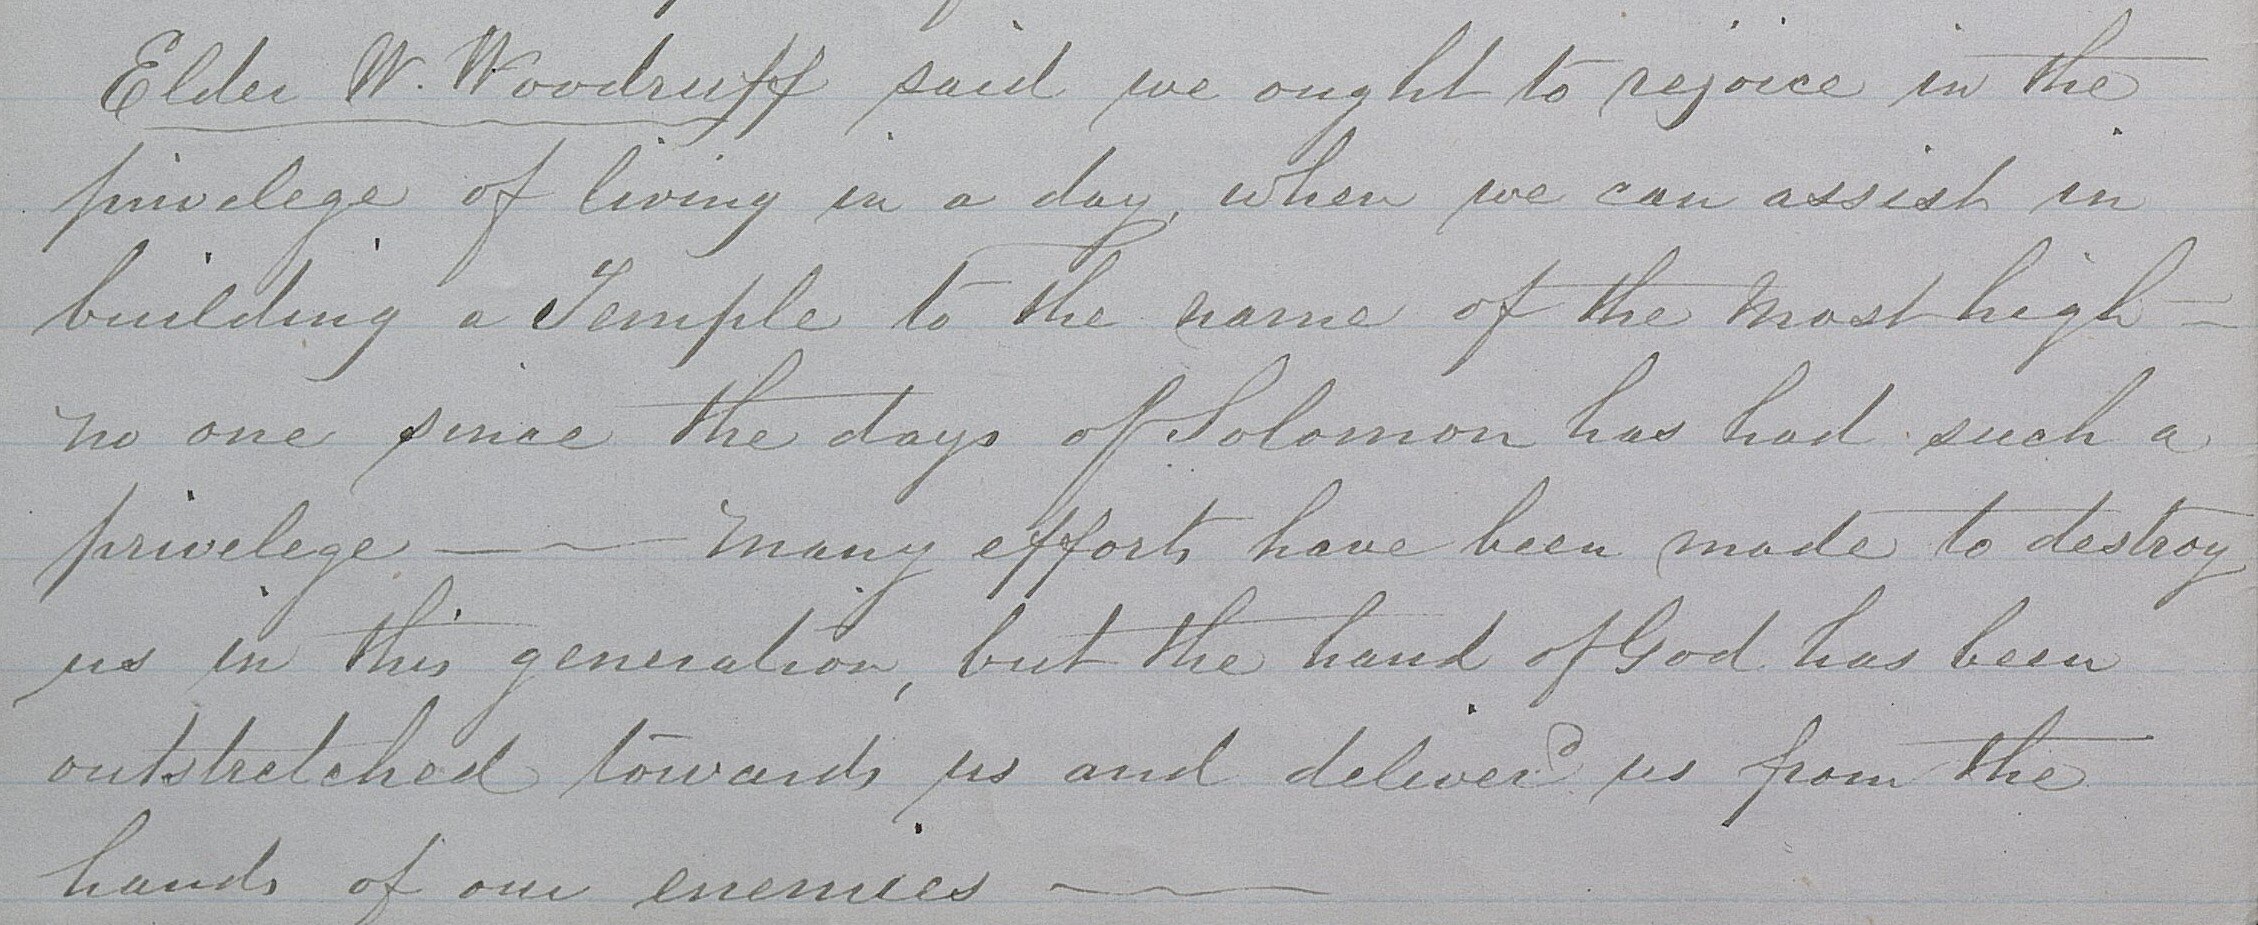 Elder W. Woodruff said we ought to rejoice in the
privelege of living in a day, when we can assist in
building a Temple to the name of the Most high —
no one since the days of Solomon has had such a
privelege — — Many efforts have been made to destroy
us in this generation, but the hand of God has been
outstretched towards us and deliver'd us from the
hands of our enemies —